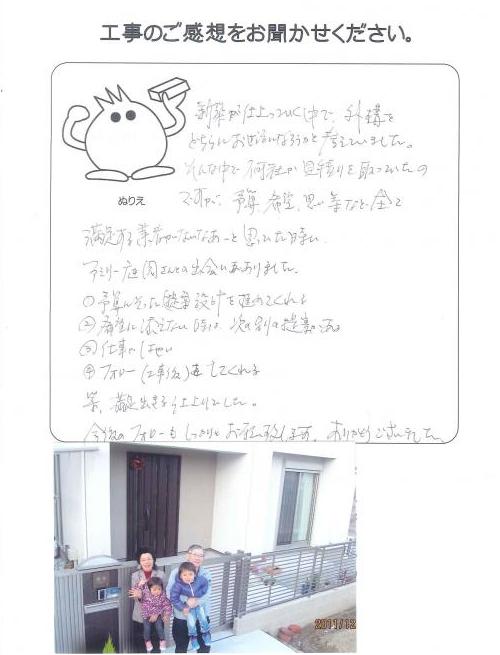 工事のご感想をお聞かせください。
新築が仕上っていく中で、外構を
どちらにお世話になろうかと考えていました。
そんな中で何社か見積りを取っていたの
ですが、予算、希望、思い等など全て
ぬりえ
満足する業者がないなあーと思っていた時に
ファミリー庭園さんとの出会いがありました。
①予算に沿った提案設計を進めてくれる
②希望に添えない時は、次の別の提案がある
③仕事がはやい
④フォロー(工事後)をしてくれる
等、満足出来る仕上りでした。
今後のフォローもしっかりとお願い致します。ありがとうございました。
2011/12